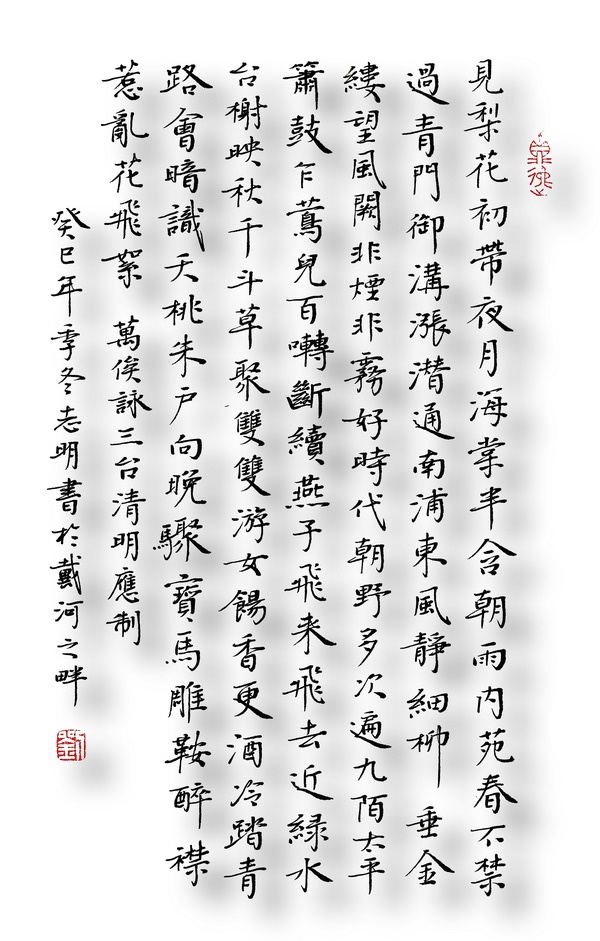 見梨花初帶夜月海棠半含朝雨内苑春不禁
過青門御溝漲潛通南浦東風靜細柳垂金
縷望風闕非煙非霧好時代朝野多次遍九陌太平
簫鼓乍鶯兒百囀斷續燕子飛来飛去近緑水
台榭映秋千斗草聚雙雙游女餳香更酒冷踏青
路會暗識夭桃朱户向晚驟寶馬雕鞍醉襟
惹亂花飛絮 萬俟詠三台清明應制
癸巳年季冬志明書於戴河之畔
劉